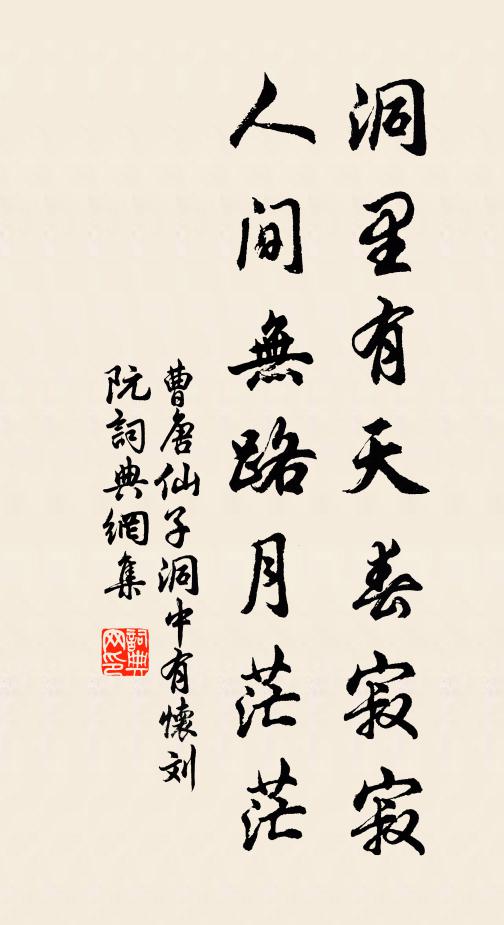 洞里有天春寂寂
人间無路月茫茫
曹唐仙子洞中有懷刘
阮詞典網集
詞典网印